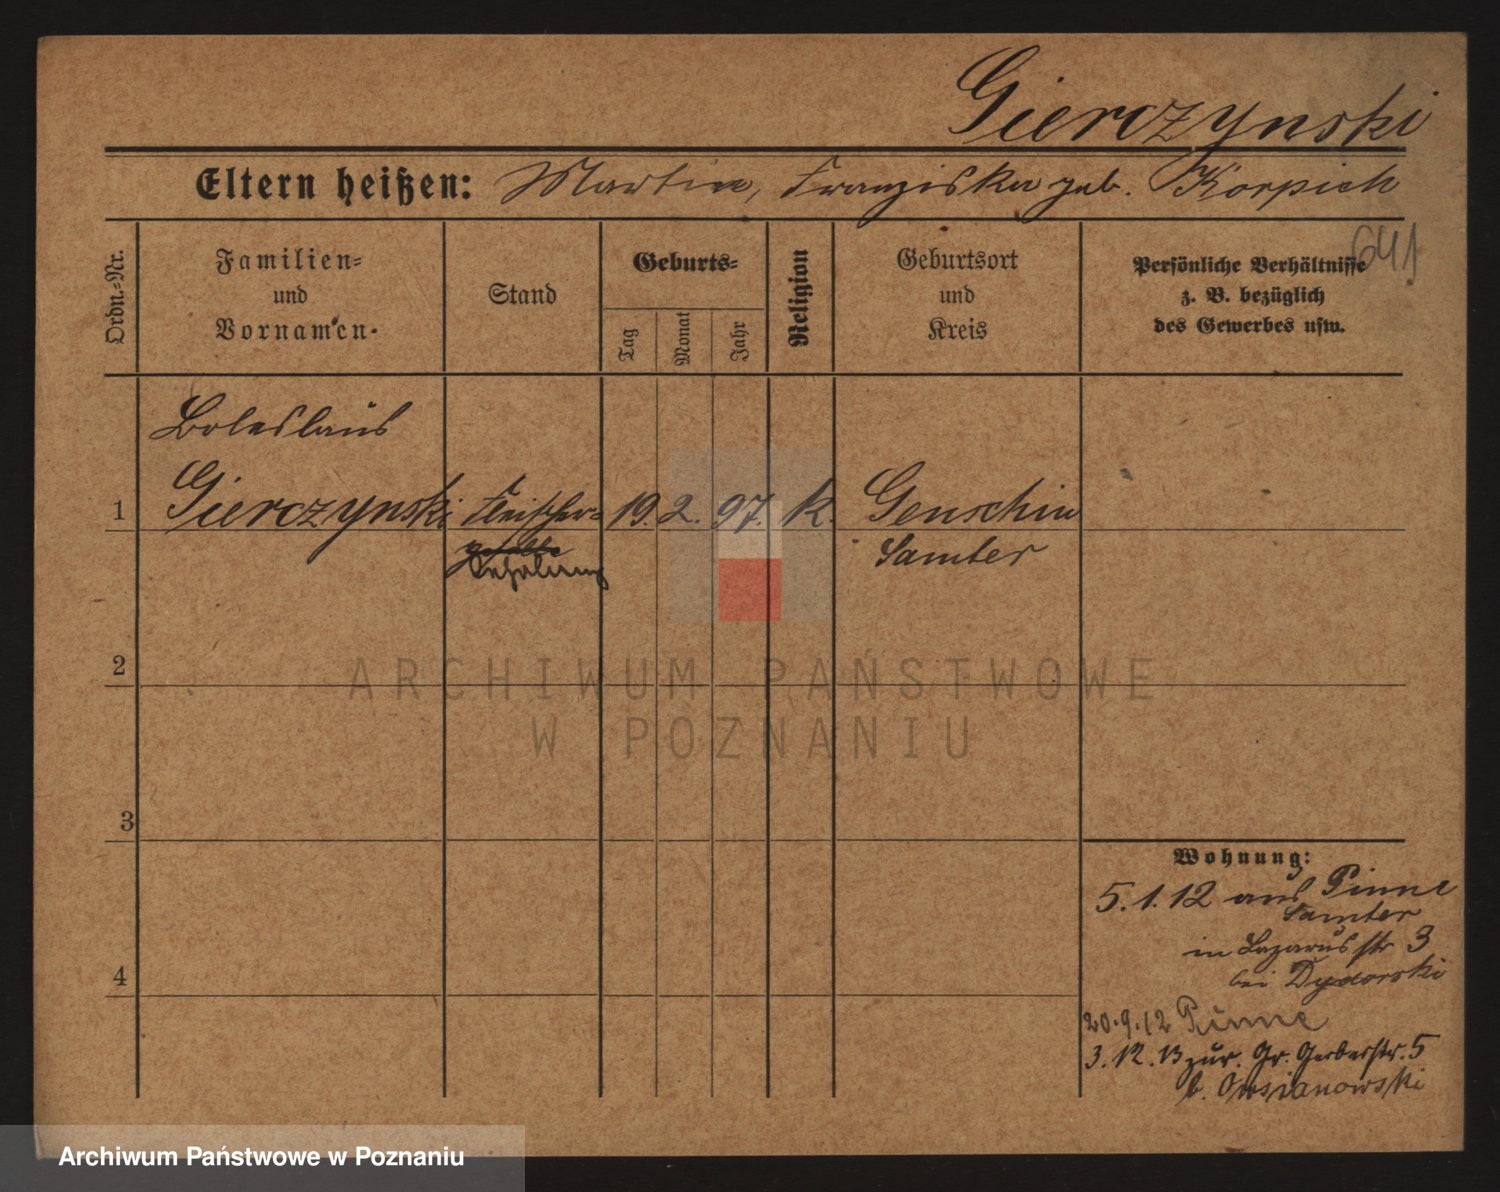 Gierczynski
Eltern heißen: Martin, Franziska geb. Korpich
641
Ordn.-Nr.
Familien-
und
Vornamen.
Stand
Geburts-
Tag
Monat
Jahr
Religion
Geburtsort
und
Kreis
Persönliche Verhältnisse
z. B. bezüglich
des Gewerbes usw.
Boleslaus
1 Gierczynski Fleischer- 19. 2. 97. k. Genschin
geselle Samter
Lehrling
2
3
4
Wohnung:
5.1.12 aus Pinne
Samter
in Lazarusstr 3
bei Dydorski
20.9.12 Pinne
3.12.13 zur. Gr. Gerberstr. 5
b. Owsianowski
ARCHIWUM PAŃSTWOWE
W POZNANIU
Archiwum Państwowe w Poznaniu